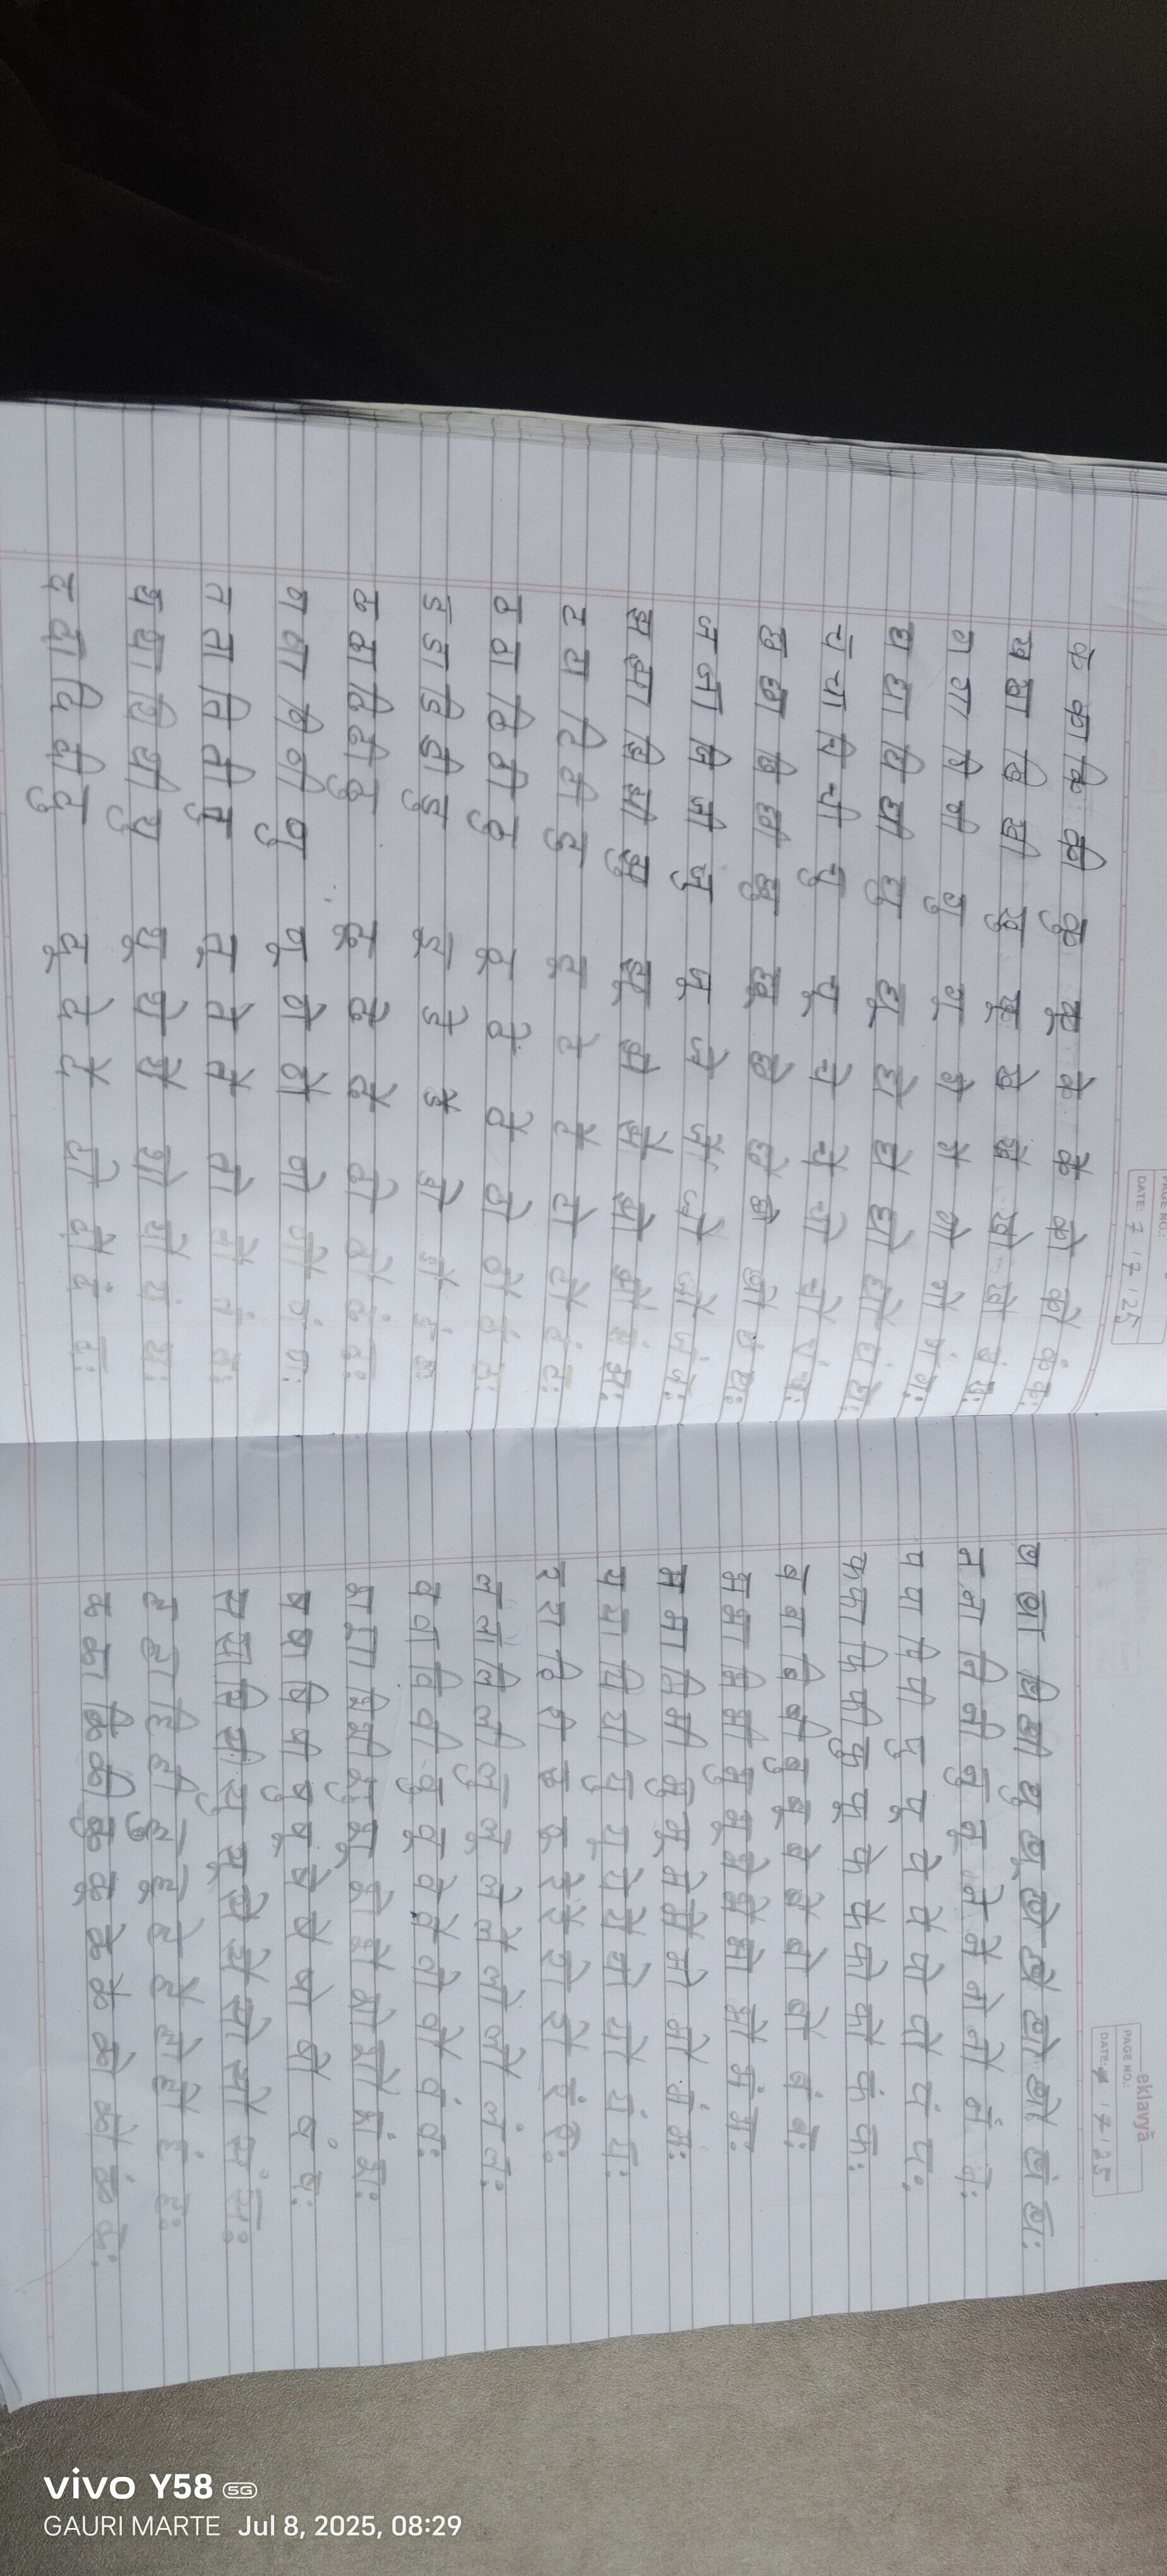 PAGE NO.:
DATE: 7 / 7 / 25
क का कि की कु कू के कै को कौ कं कः
ख खा खि खी खु खू खे खै खो खौ खं खः
ग गा गि गी गु गू गे गै गो गौ गं गः
घ घा घि घी घु घू घे घै घो घौ घं घः
च चा चि ची चु चू चे चै चो चौ चं चः
छ छा छि छी छु छू छे छै छो छौ छं छः
ज जा जि जी जु जू जे जै जो जौ जं जः
झ झा झि झी झु झू झे झै झो झौ झं झः
ट टा टि टी टु टू टे टै टो टौ टं टः
ठ ठा ठि ठी ठु ठू ठे ठै ठो ठौ ठं ठः
ड डा डि डी डु डू डे डै डो डौ डं डः
ढ ढा ढि ढी ढु ढू ढे ढै ढो ढौ ढं ढः
ण णा णि णी णु णू णे णै णो णौ णं णः
त ता ति ती तु तू ते तै तो तौ तं तः
थ था थि थी थु थू थे थै थो थौ थं थः
द दा दि दी दु दू दे दै दो दौ दं दः
eklavya
PAGE NO.:
DATE: 7 / 7 / 25
ध धा धि धी धु धू धे धै धो धौ धं धः
न ना नि नी नु नू ने नै नो नौ नं नः
प पा पि पी पु पू पे पै पो पौ पं पः
फ फा फि फी फु फू फे फै फो फौ फं फः
ब बा बि बी बु बू बे बै बो बौ बं बः
भ भा भि भी भु भू भे भै भो भौ भं भः
म मा मि मी मु मू मे मै मो मौ मं मः
य या यि यी यु यू ये यै यो यौ यं यः
र रा रि री रु रू रे रै रो रौ रं रः
ल ला लि ली लु लू ले लै लो लौ लं लः
व वा वि वी वु वू वे वै वो वौ वं वः
श शा शि शी शु शू शे शै शो शौ शं शः
ष षा षि षी षु षू षे षै षो षौ षं षः
स सा सि सी सु सू से सै सो सौ सं सः
ह हा हि ही हु हू हे है हो हौ हं हः
ळ ळा ळि ळी ळु ळू ळे ळै ळो ळौ ळं ळः
vivo Y58 5G
GAURI MARTE Jul 8, 2025, 08:29